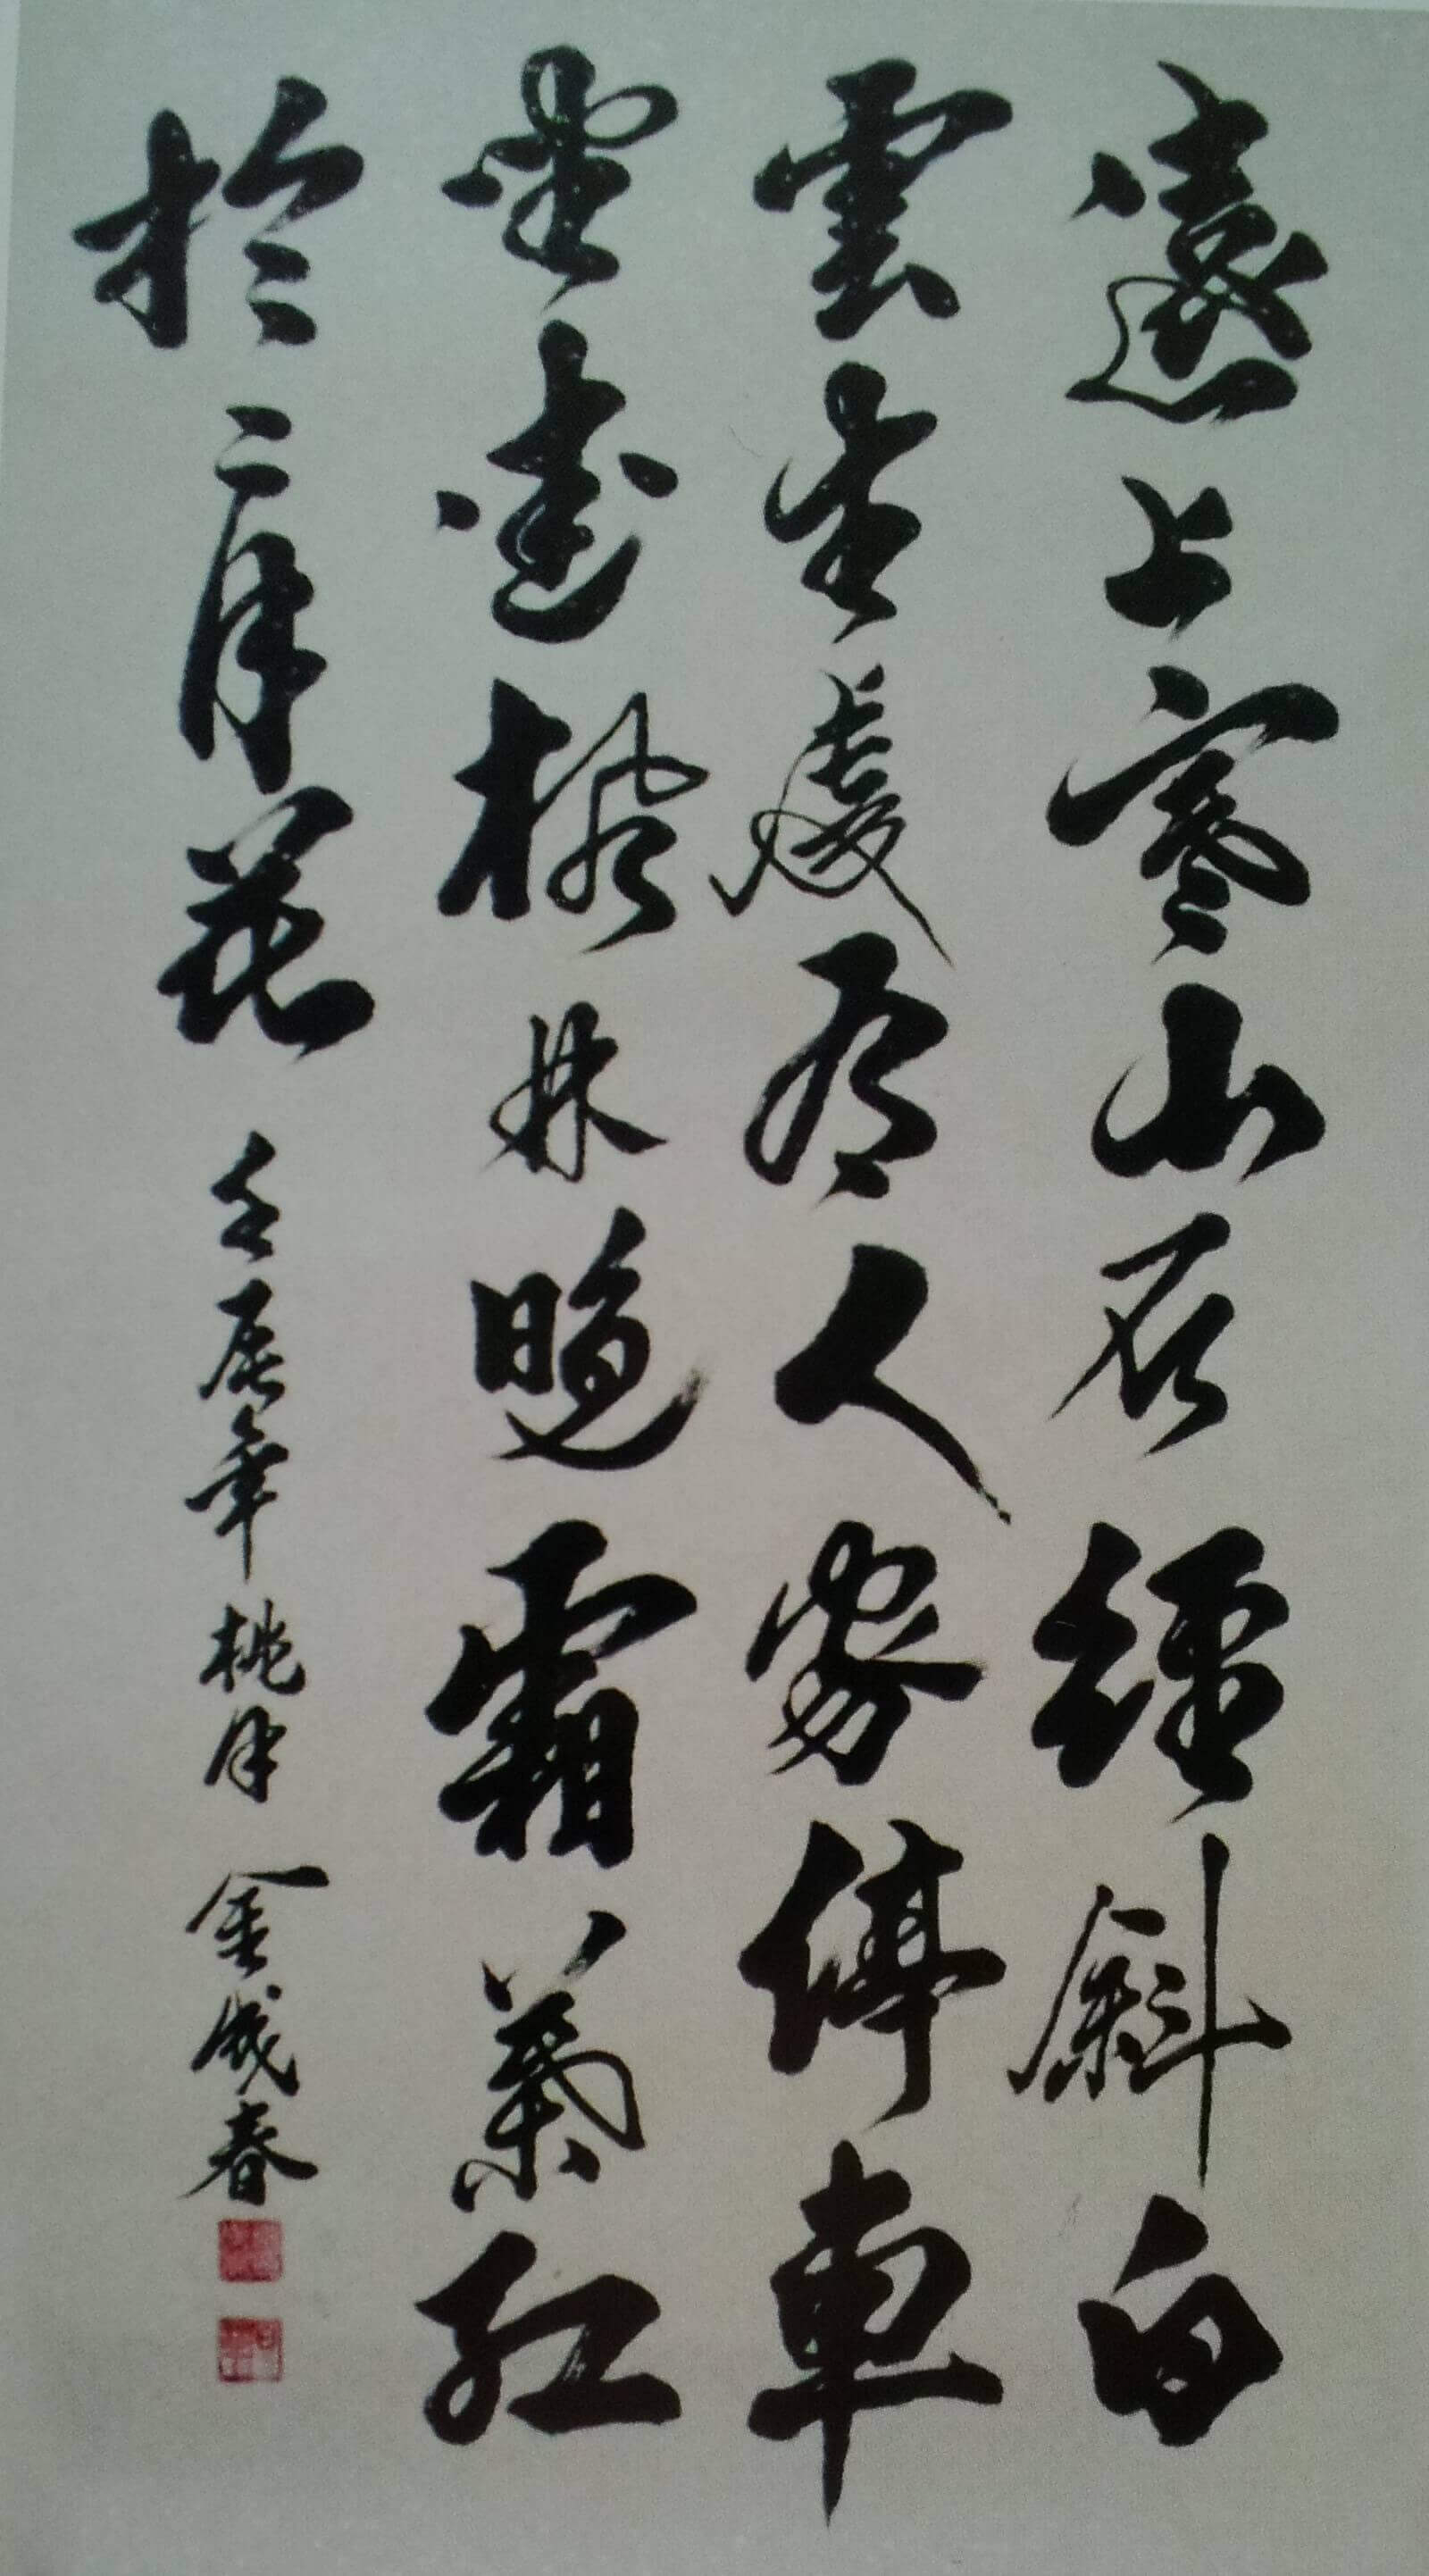 遠上寒山石徑斜白
雲生處有人家停車
坐愛楓林晚霜葉紅
於二月花
壬辰年桃月 金成春